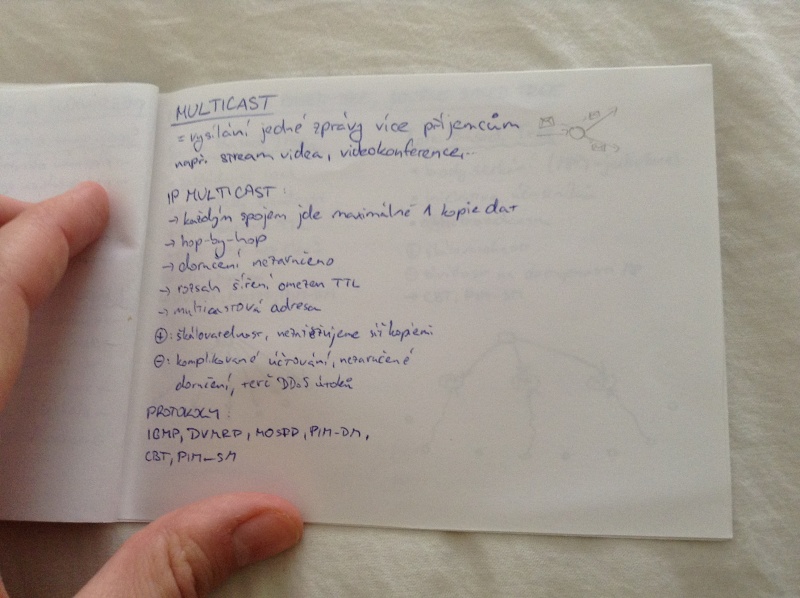 MULTICAST
= vysílání jedné zprávy více příjemcům
např. stream videa, videokonference,...
IP MULTICAST:
→ každým spojem jde maximálně 1 kopie dat
→ hop-by-hop
→ doručení nezaručeno
→ rozsah šíření omezen TTL
→ multicastová adresa
⊕: škálovatelnost, nezatěžujeme síť kopiemi
⊖: komplikované účtování, nezaručené
doručení, terč DDoS útoků
PROTOKOLY:
IGMP, DVMRP, MOSPF, PIM-DM,
CBT, PIM-SM